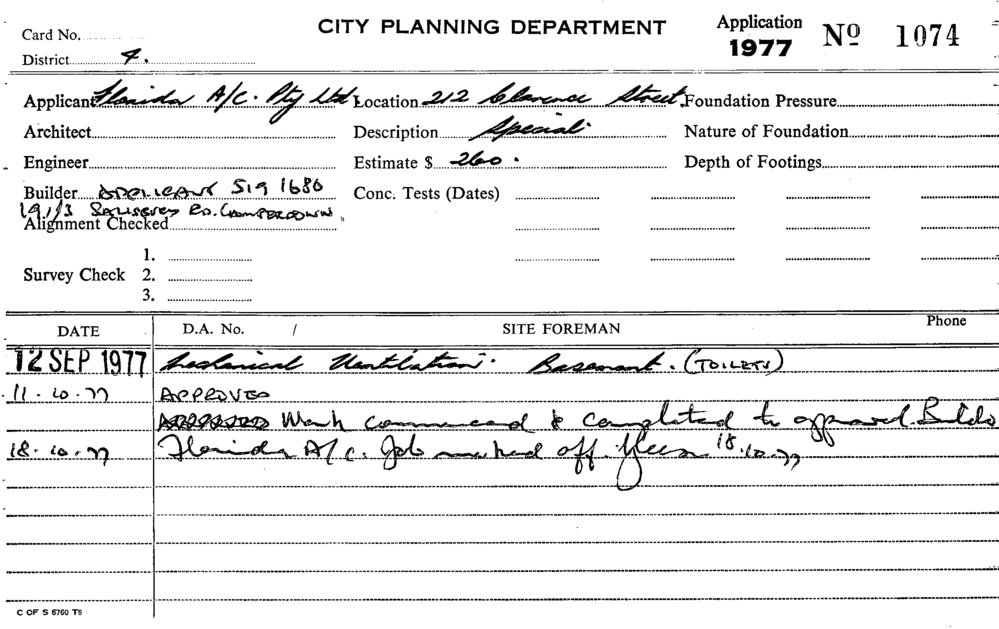 CITY PLANNING DEPARTMENT
Application
1977
Nº 1074
Card No.
District 4.
Applicant Florida A/C. Pty Ltd Location 212 Clarence Street. Foundation Pressure
Architect Description Special. Nature of Foundation
Engineer Estimate $ 260. Depth of Footings
Builder APPLICANT 519 1680 Conc. Tests (Dates)
191/3 RD. CAMPERDOWN
Alignment Checked
1.
Survey Check 2.
3.
DATE D.A. No. / SITE FOREMAN Phone
12 SEP 1977 Mechanical Ventilation. Basement. (TOILETS)
11.10.77 APPROVED
Work commenced & completed to approval. Builds
18.10.77 Florida A/C. Job marked off. 18.10.77
C OF S 6760 T6